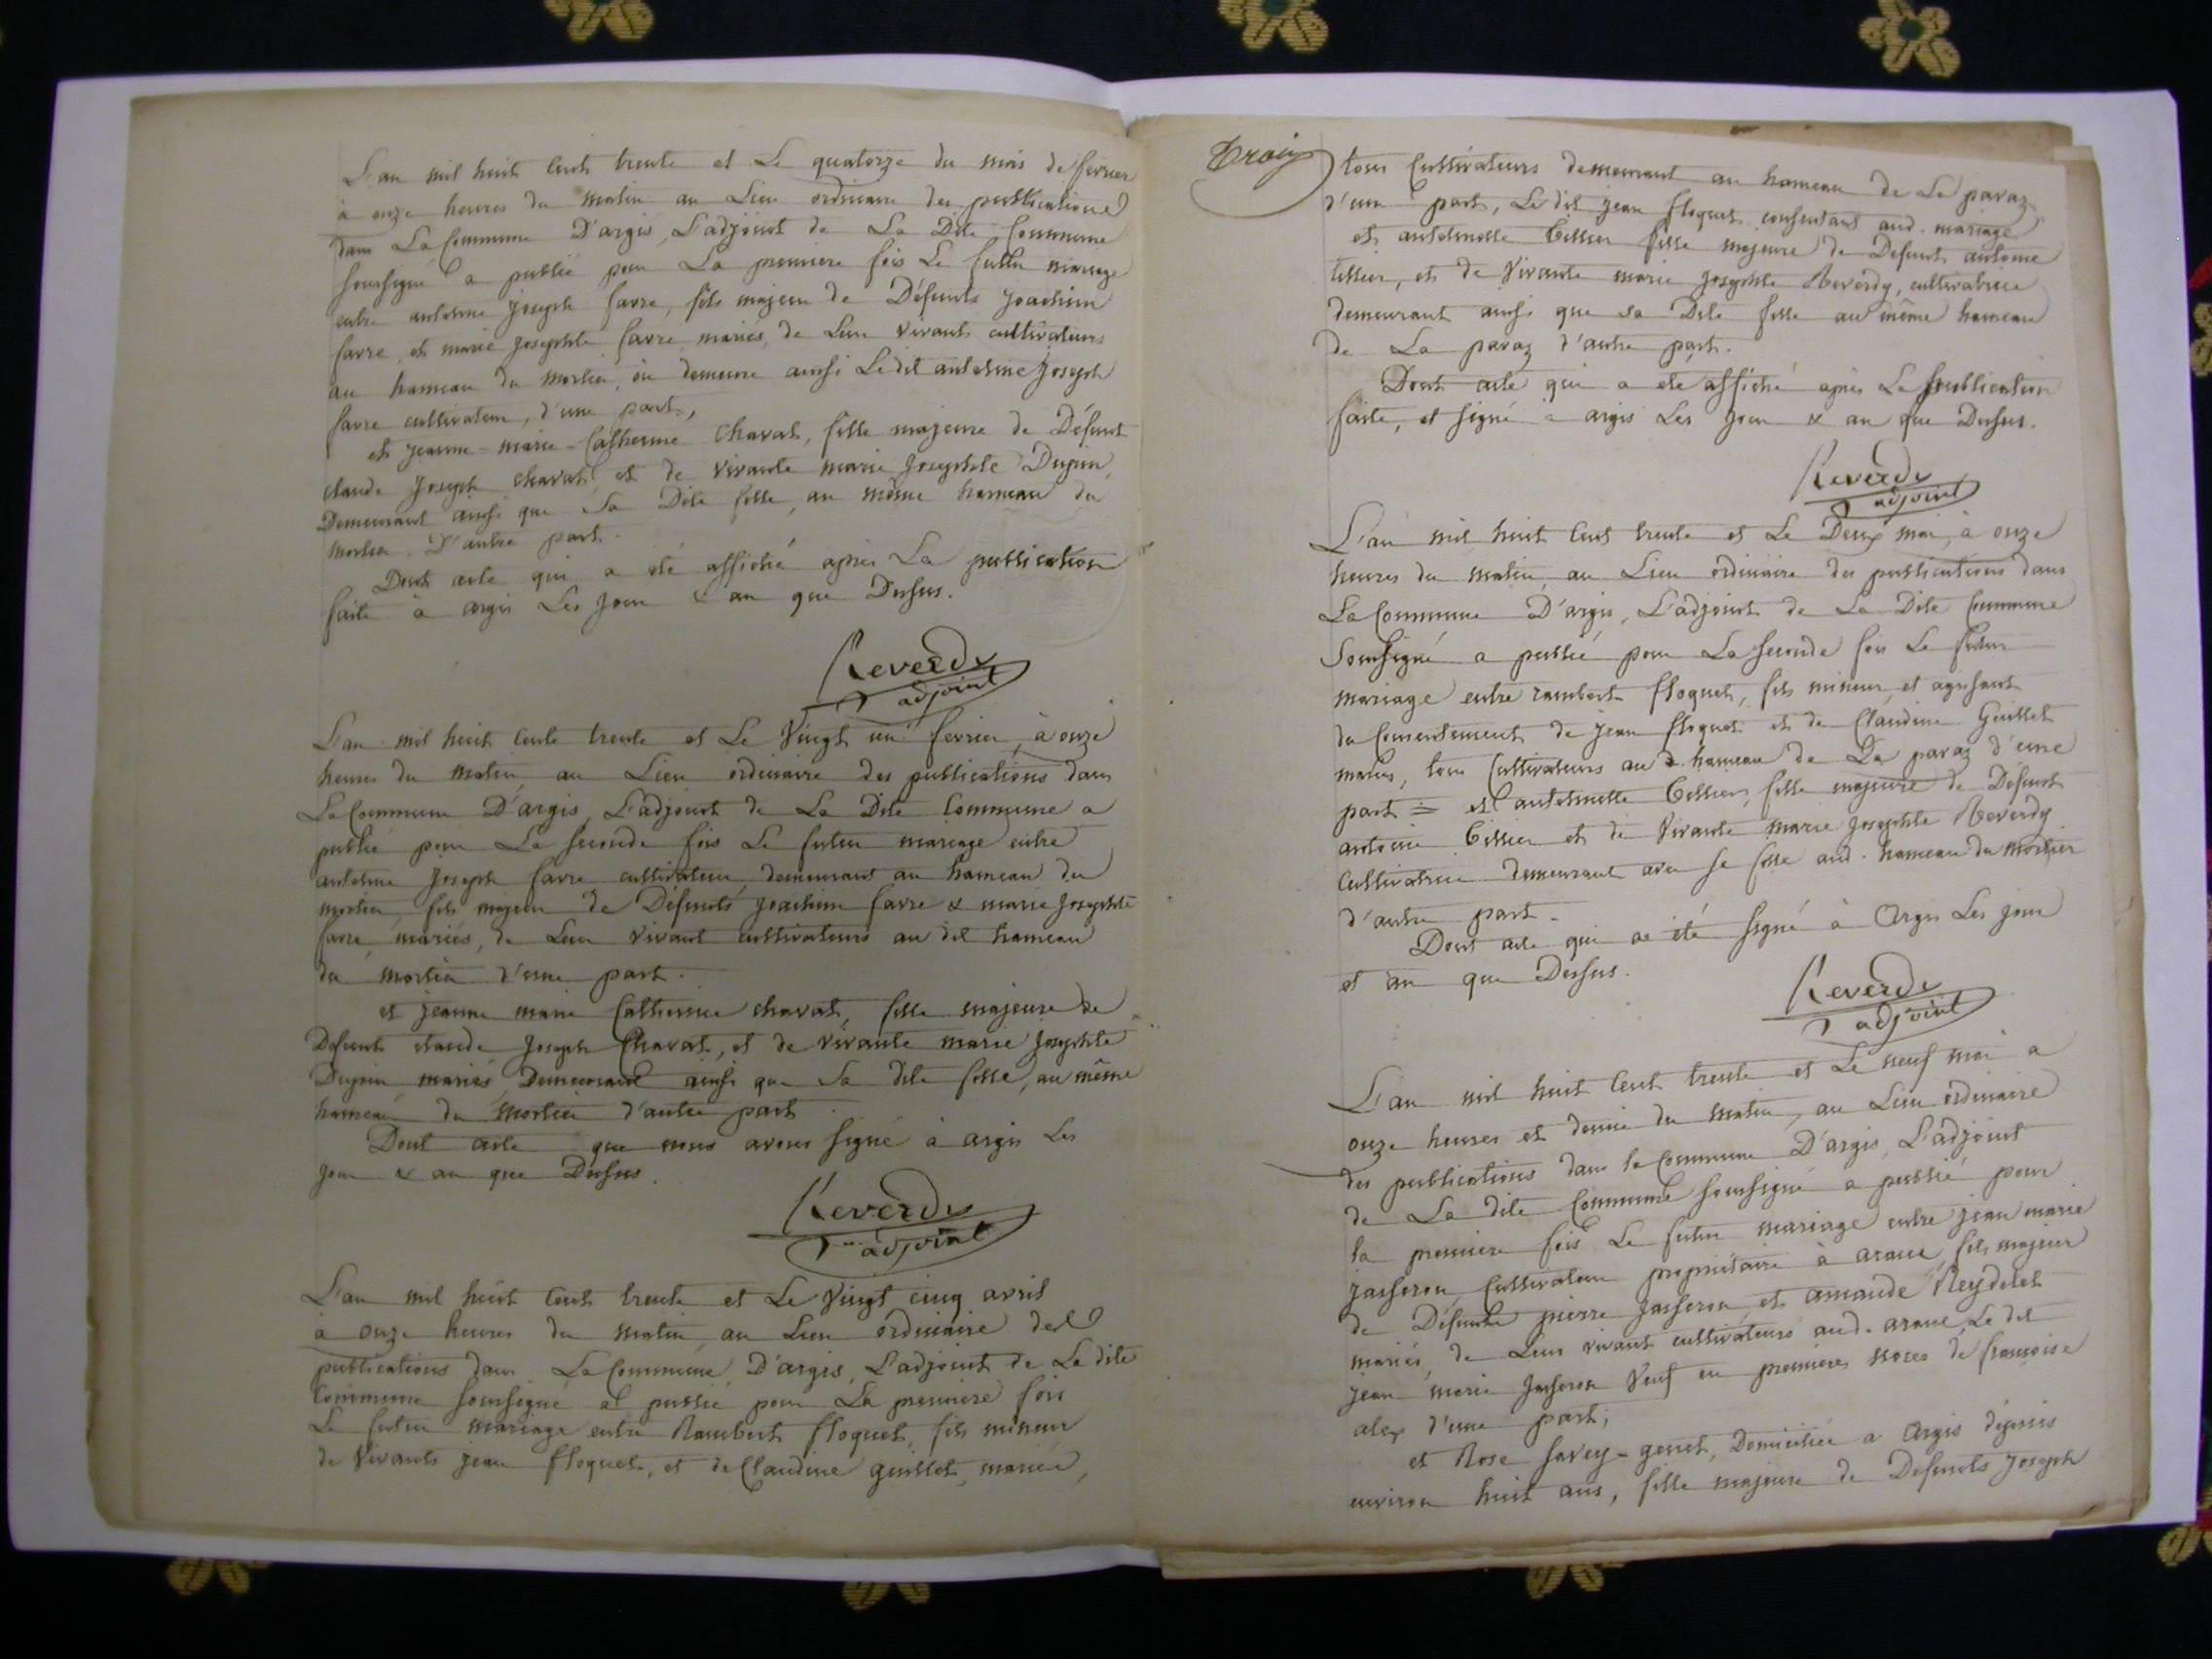 L'an mil huit cent trente et Le quatorze du mois de fevrier
à onze heures du matin au Lieu ordinaire des publications
dans La Commune D'argis, L'adjoint de La Dite Commune
soussigné a publié pour La premiere fois Le futur mariage
entre antelme joseph favre, fils majeur de Défunts joachim
favre, et marie josephte favre mariés, de Leur vivant cultivateurs
au hameau du mortier, où demeure ainsi Ledit antelme joseph
favre cultivateur, d'une part,
et jeanne-marie-Catherine Chavat, fille majeure de Défunt
claude joseph chavat, et de vivante marie josephte Dupin,
Demeurant ainsi que Sa Dite fille, au même hameau du
mortier. D'autre part.
Dont acte qui a été affiché après La publication
faite à argis Les jour & an que Dessus.
Reverdy
adjoint
L'an mil huit cent trente et Le Vingt un fevrier, à onze
heures du matin, au Lieu ordinaire des publications dans
La Commune D'argis, L'adjoint de La Dite Commune a
publié pour La seconde fois Le futur mariage entre
antelme joseph favre cultivateur, demeurant au hameau du
mortier, fils majeur de Défunts joachim favre & marie josephte
favre, mariés, de Leur vivant cultivateurs au dit hameau
du mortier d'une part.
et jeanne marie Catherine chavat, fille majeure de
Defunt claude joseph Chavat, et de vivante marie josephte
Dupin, mariés, Demeurant ainsi que Sa dite fille, au même
hameau du mortier d'autre part
Dont acte que nous avons signé à argis Les
jour & an que Dessus.
Reverdy
adjoint
L'an mil huit cent trente et Le Vingt cinq avril
à onze heures du matin, au Lieu ordinaire des
publications dans La Commune, D'argis, L'adjoint de La dite
Commune soussigné a publié pour La premiere fois
Le futur mariage entre Rambert floquet, fils mineur
de Vivants jean floquet, et de Claudine guillet, mariés,
Trois
tous Cultivateurs demeurant au hameau de La paraz
d'une part, Le dit jean floquet consentant aud. mariage
et antelmette Tissier fille majeure de Defunt antoine
tissier, et de Vivante marie josephte Reverdy, cultivatrice
demeurant ainsi que sa Dite fille au même hameau
de La paraz d'autre part.
Dont acte qui a été affiché après La publication
faite, et signé a argis Les jour & an que Dessus.
Reverdy
adjoint
L'an mil huit cent trente et Le Deux mai, à onze
heures du matin, au Lieu ordinaire des publications dans
La Commune D'argis, L'adjoint de La Dite Commune
Soussigné a publié pour La seconde fois Le futur
mariage entre rambert floquet, fils mineur, et agissant
du Consentement de jean floquet et de Claudine Guillet
mariés, tous Cultivateurs au d. hameau de La paraz d'une
part = et antelmette Tissier, fille majeure de Défunt
antoine Tissier et de Vivante marie josephte Reverdy
Cultivatrice demeurant avec sa fille aud. hameau du mortier
d'autre part.
Dont acte qui a été signé à Argis Les jour
et an que Dessus.
Reverdy
adjoint
L'an mil huit cent trente et Le neuf mai a
onze heures et demie du matin, au Lieu ordinaire
des publications dans la Commune D'argis, L'adjoint
de La dite Commune soussigné a publié pour
la premiere fois Le futur mariage entre jean marie
jasseron, Cultivateur propriétaire à aranc, fils majeur
de Défunts pierre jasseron, et amande Reydelet
mariés, de Leur vivant cultivateurs aud. aranc, Le dit
jean marie jasseron Veuf en premieres noces de francoise
alex d'une part;
et Rose savey-genet, Domiciliée a Argis depuis
environ huit ans, fille majeure de Defunts joseph